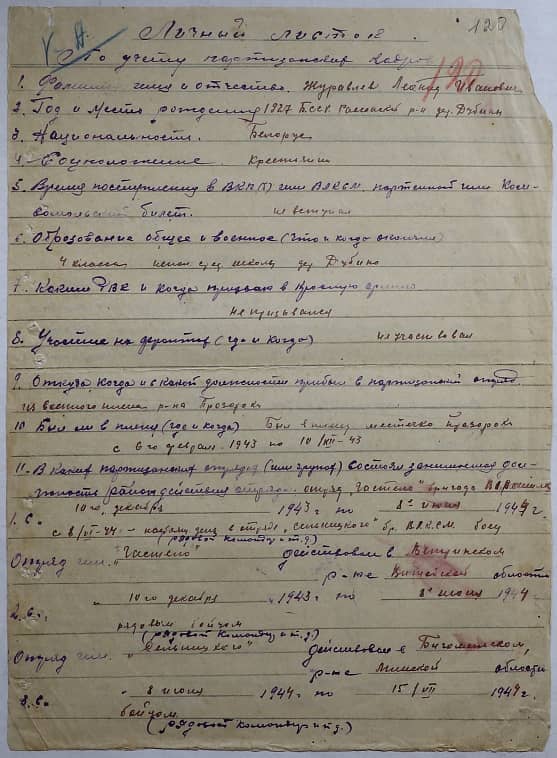 120
Личный листок
По учету партизанских кадров
1. Фамилия имя и отчество. Журавлев Леонид Иванович
2. Год и место рождения 1927 БССР р-н дер. Дубина
3. Национальность. Белорус
4. Соцположение Крестьянин
5. Время поступления в ВКП(б) или ВЛКСМ. партейный или Ком-
сомольский билет. не вступал
6. Образование общее и военное (что и когда окончил)
4 класса школы дер Дубино
7. Каким РВК и когда призван в Красную армию
Не призывался
8. Участие на фронтах (где и когда) не участвовал
9. Откуда, когда и в какой должности прибыл в партизанский отряд
из военного плена р-на Прозороки
10 Был ли в плену (где и когда) Был в плену местечко Прозороки
с 6го февраля 1943 по 10/XII-43
11. В каких партизанских отрядах (или группах) состоял занимаемая дол-
жность район действия отряда. отряд "Частено" бригада
1. С. 10го декабря 1943 по 8го июня 1944
с 8/VI-44 - бр. ВЛКСМ боец
(рядовой командир и т.д.)
Отряд им. "Частено" действовал в Ветринском
р-не области
" 10го декабря 1943 по 8го июня 1944
2. С.
рядовым бойцом
(рядовой командир и т.д.)
Отряд им. действовал в Бегомельском,
р-не Минской области
3. С " 8 июня 1944 по 15/VII 1944г.
бойцом
(рядовой командир и т.д.)